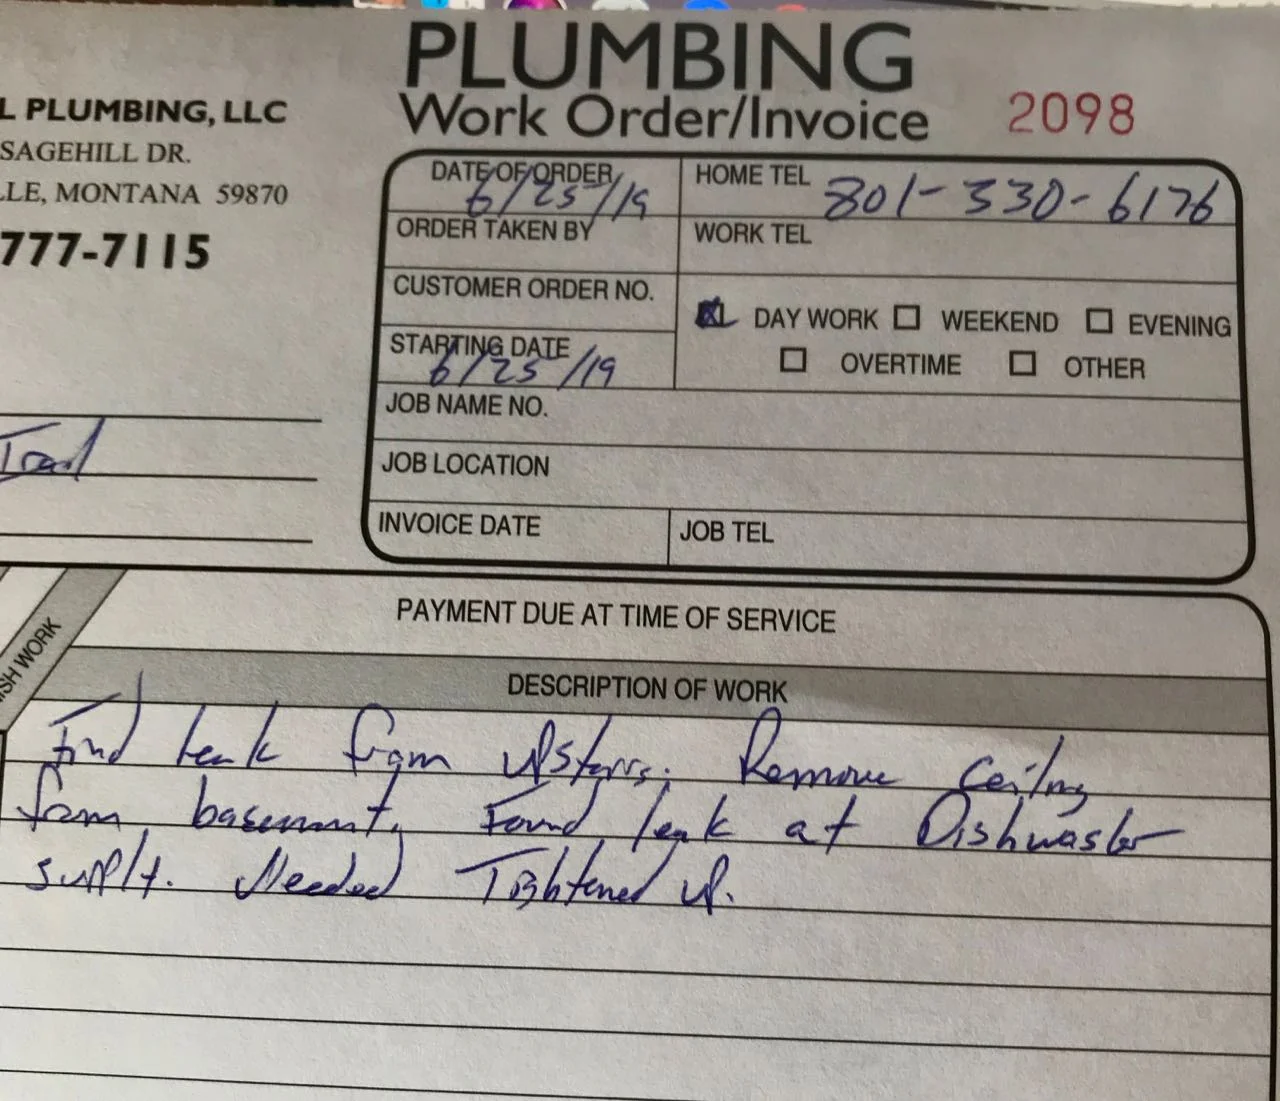 PLUMBING
Work Order/Invoice 2098
L PLUMBING, LLC
SAGEHILL DR.
LLE, MONTANA 59870
777-7115
DATE OF ORDER 6/25/19
HOME TEL 801-330-6176
ORDER TAKEN BY
WORK TEL
CUSTOMER ORDER NO.
DAY WORK WEEKEND EVENING
OVERTIME OTHER
STARTING DATE 6/25/19
JOB NAME NO.
JOB LOCATION
INVOICE DATE
JOB TEL
PAYMENT DUE AT TIME OF SERVICE
SH WORK
DESCRIPTION OF WORK
Find leak from upstairs. Remove ceiling
from basement. Found leak at Dishwasher
supply. Needed Tightened up.